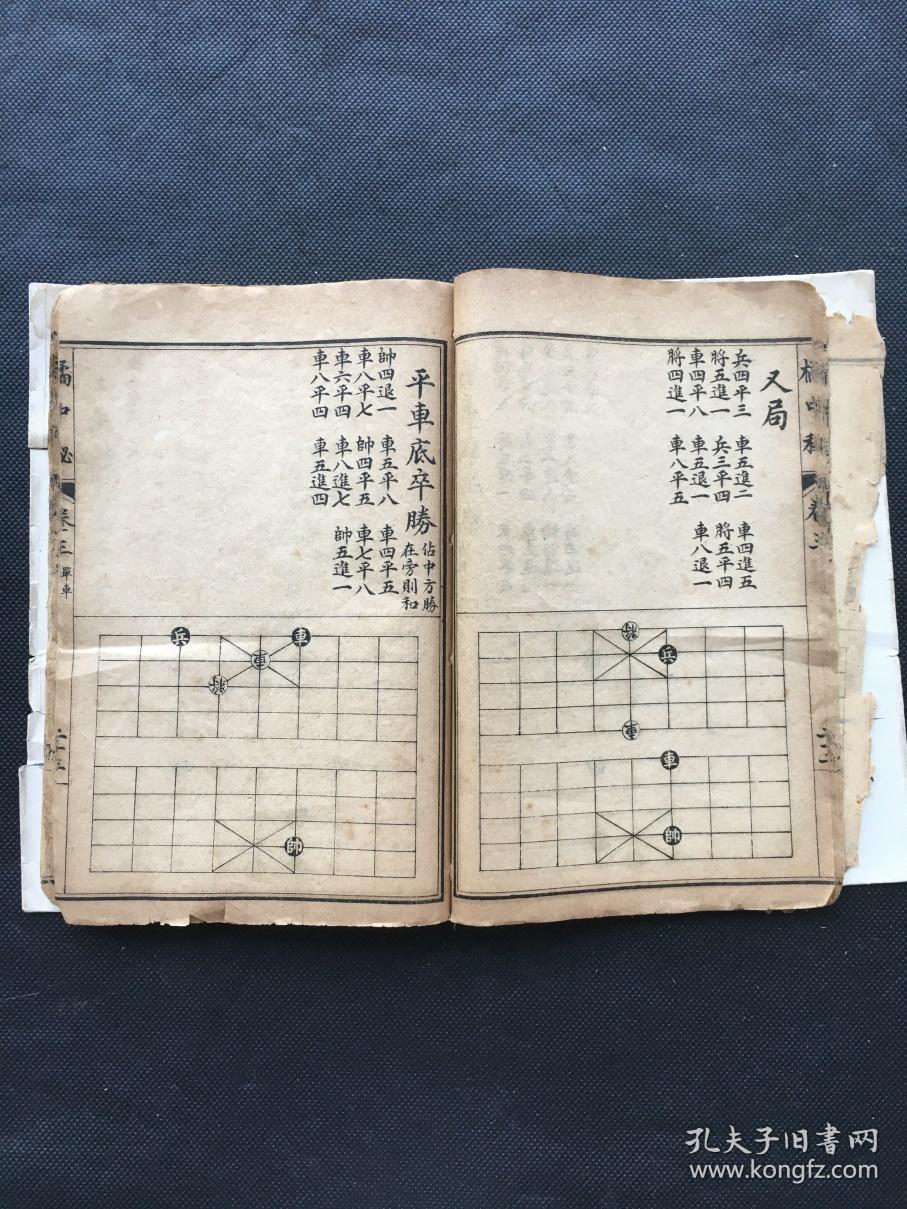 又局
兵四平三 車五進二 車四進五
將五進一 兵三平四 將五平四
車四平八 車五退一 車八退一
將四進一 車八平五
將
兵
車
車
帥
平車底卒勝
佔中方勝
在旁則和
帥四退一 車五平八 車四平五
車八平七 帥四平五 車七平八
車六平四 車八進七 帥五進一
車八平四 車五進四
兵
車
車
將
帥
卷三
單車
孔夫子旧書网
www.kongfz.com